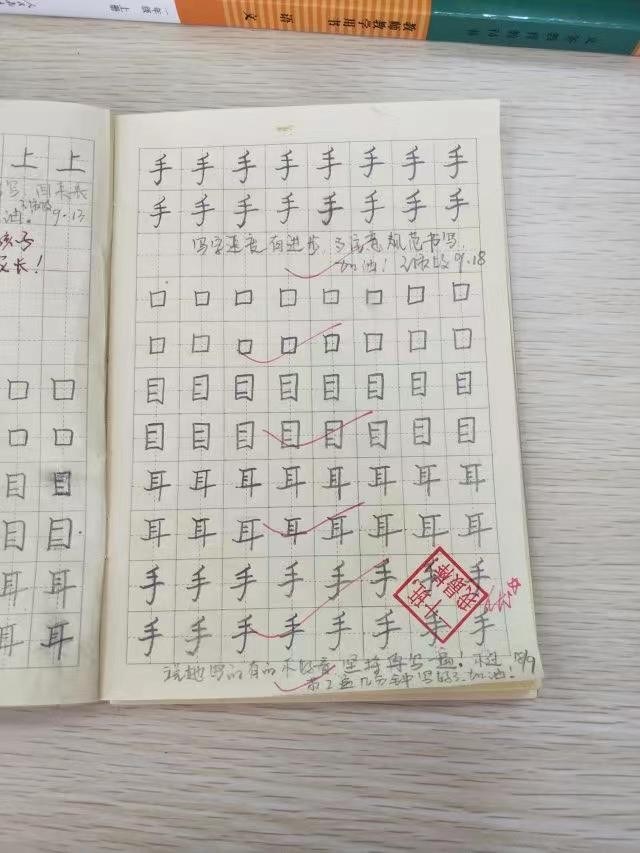 一年级 上册
语文
教师教学用书
上 上
9.13
长!
口 口
口 口
目 目
目 目
耳 耳
耳 耳
手 手 手 手 手 手 手 手
手 手 手 手 手 手 手 手
写字速度有进步,多注意规范书写,
加油! 9.18
口 口 口 口 口 口 口 口
口 口 口 口 口 口 口 口
目 目 目 目 目 目 目 目
目 目 目 目 目 目 目 目
耳 耳 耳 耳 耳 耳 耳 耳
耳 耳 耳 耳 耳 耳 耳 耳
手 手 手 手 手 手 手 手
手 手 手 手 手 手 手 手
我最棒
写的有的不好看 坚持再写一遍! 不过
第2遍几分钟写好了加油!